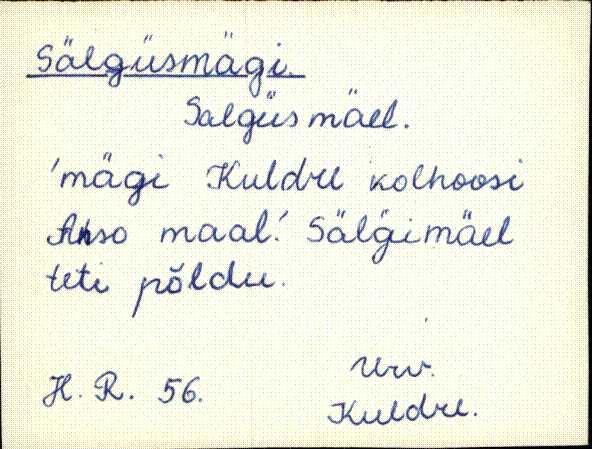 Sälgüsmägi.
Salgüsmäel.
'mägi Kuldre kolhoosi
Ahso maal.' Sälgimäel
teti põldu.
H. R. 56.
Urv.
Kuldre.